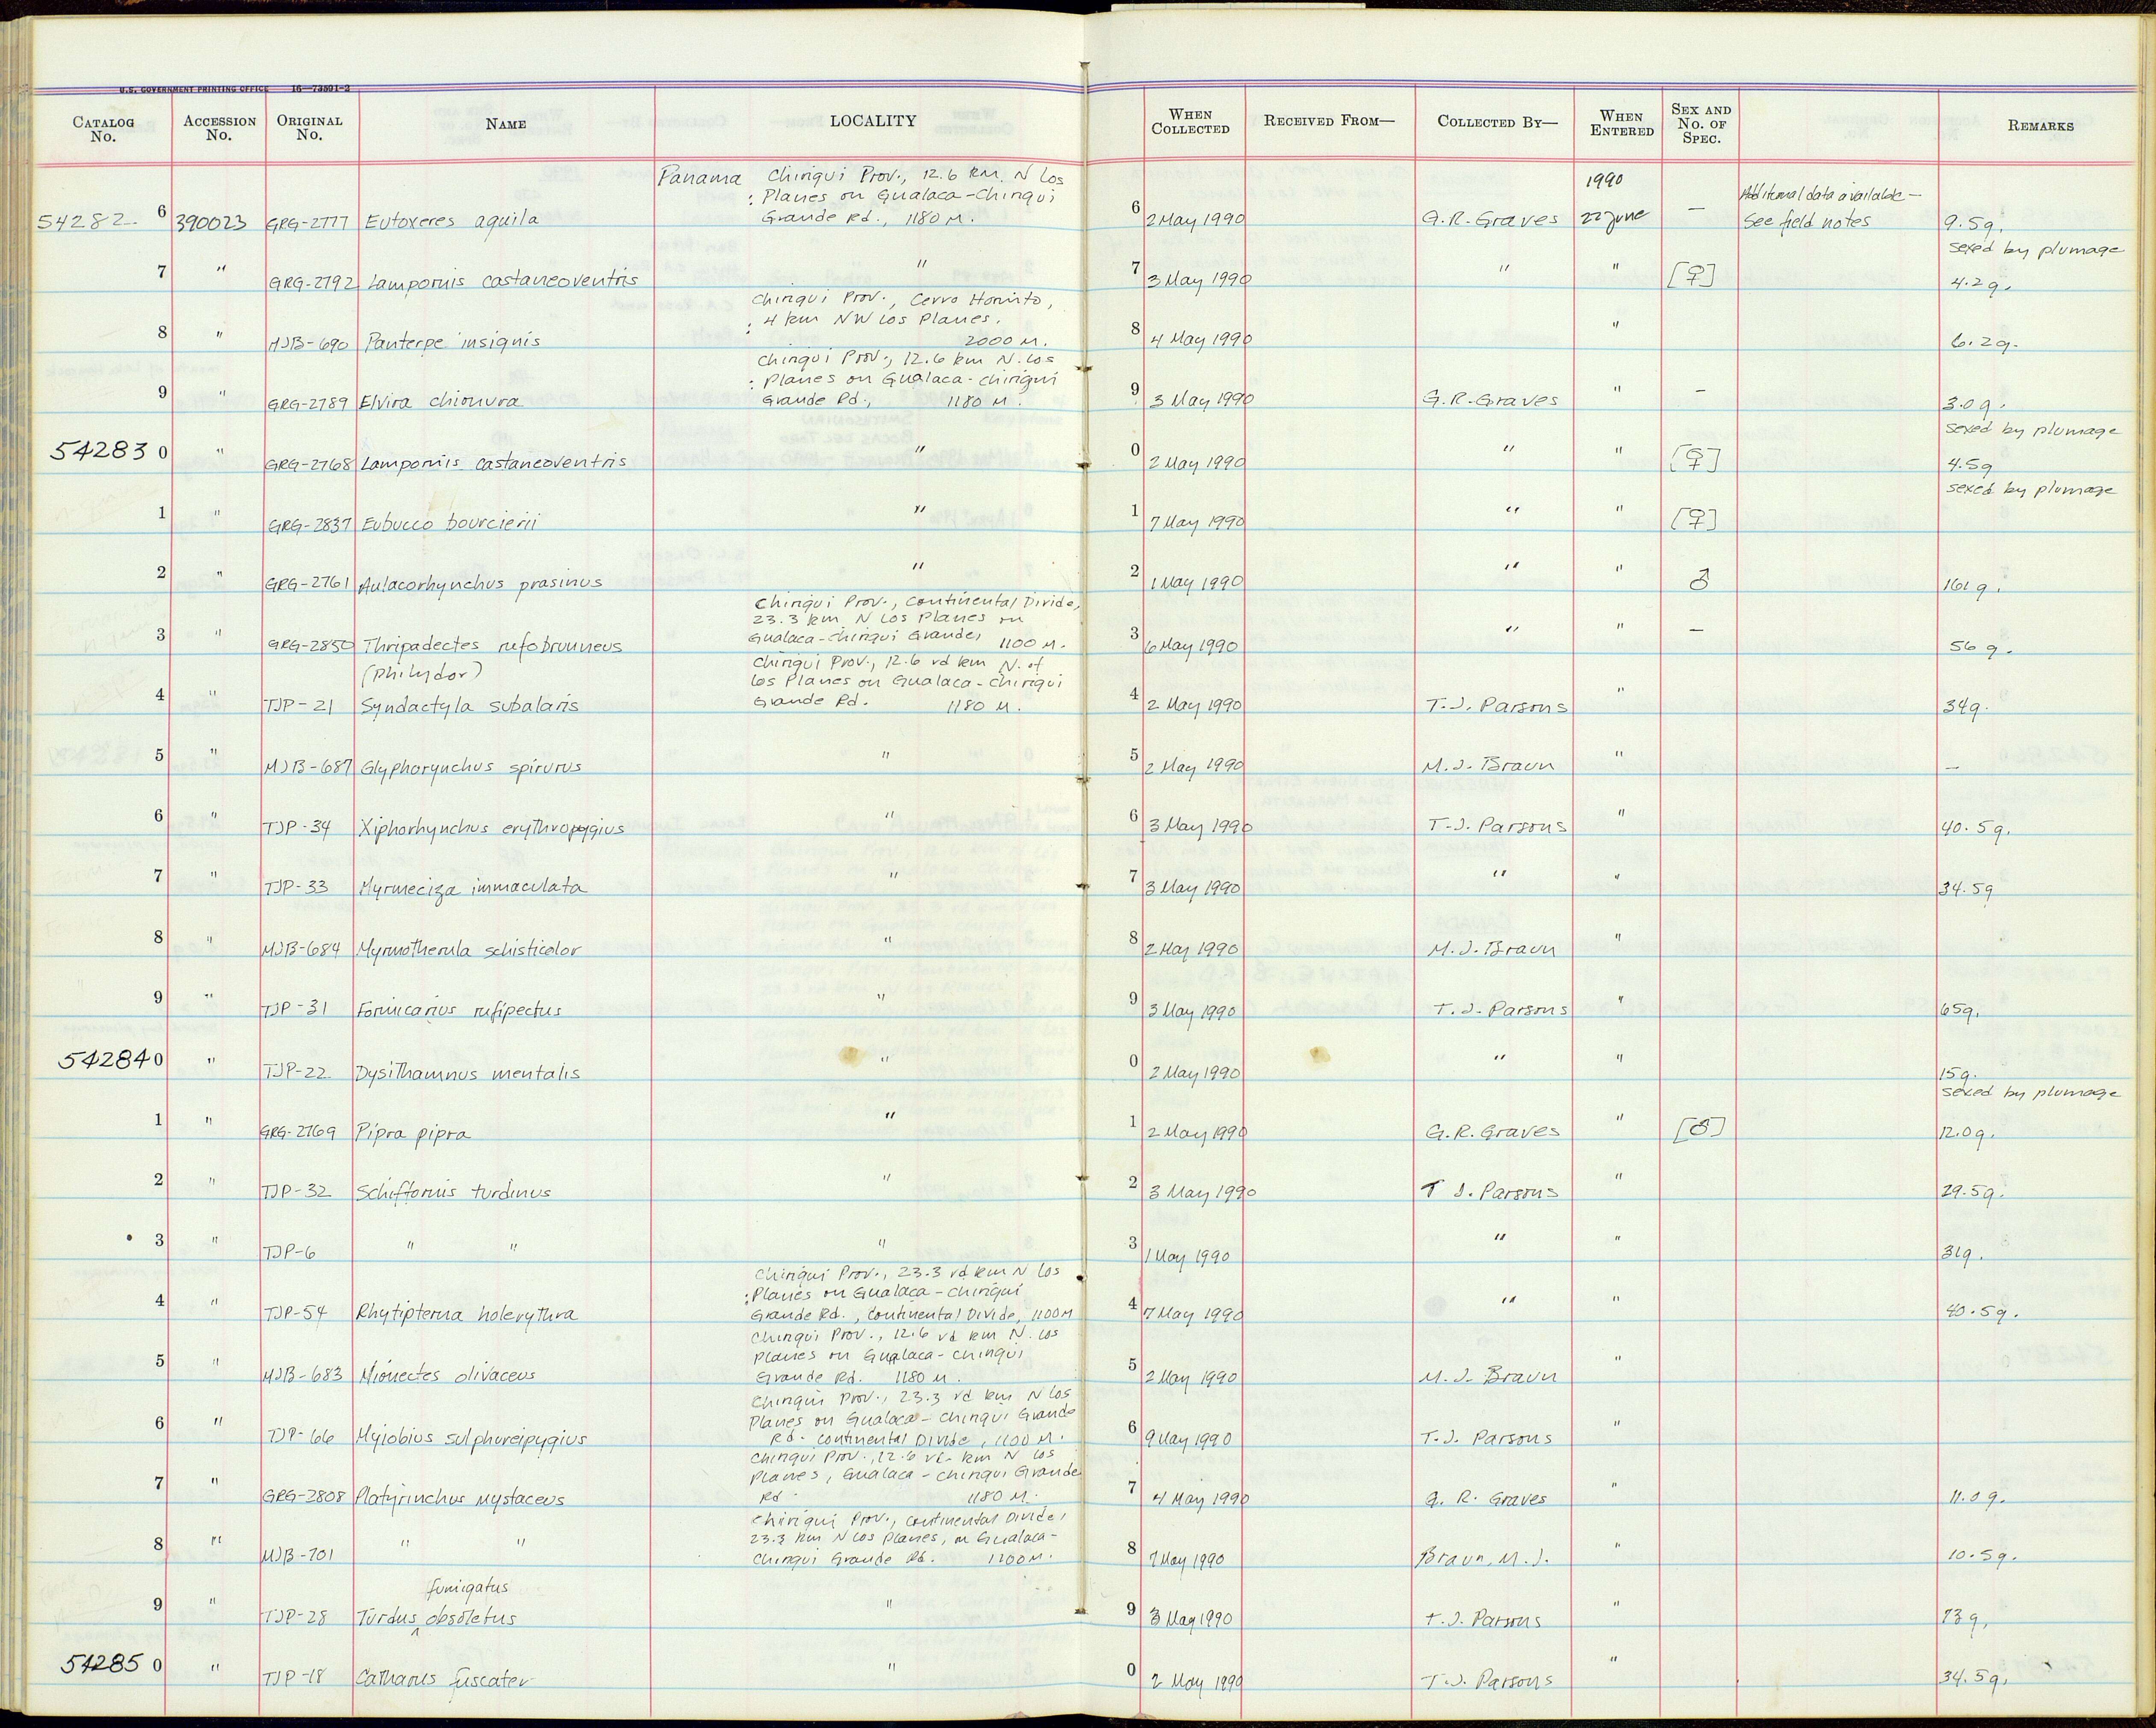 U.S. GOVERNMENT PRINTING OFFICE 16—73591-2
CATALOG No. ACCESSION No. ORIGINAL No. NAME LOCALITY WHEN COLLECTED RECEIVED FROM— COLLECTED BY— WHEN ENTERED SEX AND No. OF SPEC. REMARKS
Panama Chiriqui Prov., 12.6 km. N Los
: Planes on Gualaca-Chiriqui 1990 Additional data available—
54282 6 390023 GRG-2777 Eutoxeres aquila Grande Rd., 1180 M. 6 2 May 1990 G.R. Graves 22 June — See field notes 9.5g.
sexed by plumage
7 " GRG-2792 Lampornis castaneoventris " 7 3 May 1990 " " [♀] 4.2g.
Chiriqui Prov., Cerro Hornito,
: 4 km NW Los Planes.
8 " MJB-690 Panterpe insignis 2000 M. 8 4 May 1990 " 6.2g.
Chiriqui Prov., 12.6 km N. Los
: Planes on Gualaca-Chiriqui
9 " GRG-2789 Elvira chionura Grande Rd., 1180 M. 9 3 May 1990 G.R. Graves " — 3.0g.
sexed by plumage
54283 0 " GRG-2768 Lampornis castaneoventris " 0 2 May 1990 " " [♀] 4.5g
sexed by plumage
1 " GRG-2837 Eubucco bourcierii " 1 7 May 1990 " " [♀]
2 " GRG-2761 Aulacorhynchus prasinus " 2 1 May 1990 " " ♂ 161g.
Chiriqui Prov., Continental Divide,
23.3 km. N Los Planes on
3 " GRG-2850 Thripadectes rufobrunneus Gualaca-Chiriqui Grande, 1100 M. 3 6 May 1990 " " — 56g.
(Philydor) Chiriqui Prov., 12.6 rd km N. of
Los Planes on Gualaca-Chiriqui
4 " TJP-21 Syndactyla subalaris Grande Rd. 1180 M. 4 2 May 1990 T.J. Parsons " 34g.
5 " MJB-687 Glyphorynchus spirurus " 5 2 May 1990 M.J. Braun " —
6 " TJP-34 Xiphorhynchus erythropygius " 6 3 May 1990 T.J. Parsons " 40.5g.
7 " TJP-33 Myrmeciza immaculata " 7 3 May 1990 " " 34.5g
8 " MJB-684 Myrmotherula schisticolor " 8 2 May 1990 M.J. Braun "
9 " TJP-31 Formicarius rufipectus " 9 3 May 1990 T.J. Parsons " 65g.
54284 0 " TJP-22 Dysithamnus mentalis " 0 2 May 1990 " " 15g.
sexed by plumage
1 " GRG-2769 Pipra pipra " 1 2 May 1990 G.R. Graves " [♂] 12.0g.
2 " TJP-32 Schiffornis turdinus " 2 3 May 1990 T J. Parsons " 29.5g.
3 " TJP-6 " " " 3 1 May 1990 " " 31g.
Chiriqui Prov., 23.3 rd km N Los
: Planes on Gualaca-Chiriqui
4 " TJP-54 Rhytipterna holerythra Grande Rd., Continental Divide, 1100M 4 7 May 1990 " " 40.5g.
Chiriqui Prov., 12.6 rd km N. Los
Planes on Gualaca-Chiriqui
5 " MJB-683 Mionectes olivaceus Grande Rd. 1180 M. 5 2 May 1990 M.J. Braun "
Chiriqui Prov., 23.3 rd km N Los
Planes on Gualaca-Chiriqui Grande
6 " TJP-66 Myiobius sulphureipygius Rd. Continental Divide, 1100 M. 6 9 May 1990 T.J. Parsons "
Chiriqui Prov., 12.6 rd. km N Los
Planes, Gualaca-Chiriqui Grande
7 " GRG-2808 Platyrinchus mystaceus Rd. 1180 M. 7 4 May 1990 G. R. Graves " 11.0g.
Chiriqui Prov., Continental Divide,
23.3 km N Los Planes, on Gualaca-
8 " MJB-701 " " Chiriqui Grande Rd. 1100M. 8 7 May 1990 Braun, M.J. " 10.5g.
fumigatus
9 " TJP-28 Turdus ^ obsoletus " 9 3 May 1990 T.J. Parsons " 73g.
54285 0 " TJP-18 Catharus fuscater " 0 2 May 1990 T.J. Parsons " 34.5g.